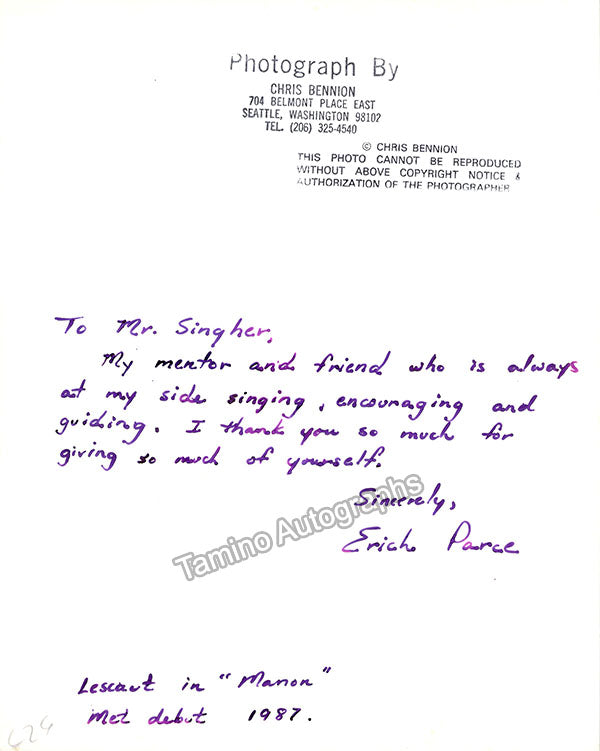 Photograph By
CHRIS BENNION
704 BELMONT PLACE EAST
SEATTLE, WASHINGTON 98102
TEL. (206) 325-4540
© CHRIS BENNION
THIS PHOTO CANNOT BE REPRODUCED
WITHOUT ABOVE COPYRIGHT NOTICE &
AUTHORIZATION OF THE PHOTOGRAPHER
To Mr. Singher,
My mentor and friend who is always
at my side singing, encouraging and
guiding. I thank you so much for
giving so much of yourself.
Sincerely,
Erich Parce
Tamino Autographs
Lescaut in "Manon"
Met debut 1987.